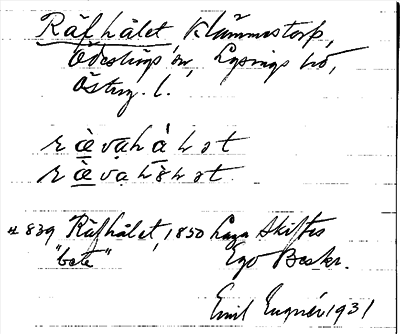 Räfhålet, Klämmestorp,
Ödeshögs sn, Lysings hd,
Östug. l.
ræ̀vahå̀lət
ræ̀vahə̀lət.
# 839 Räfhålet, 1850 Laga Skiftes
"bete" Ego Beskr.
Emil 1931